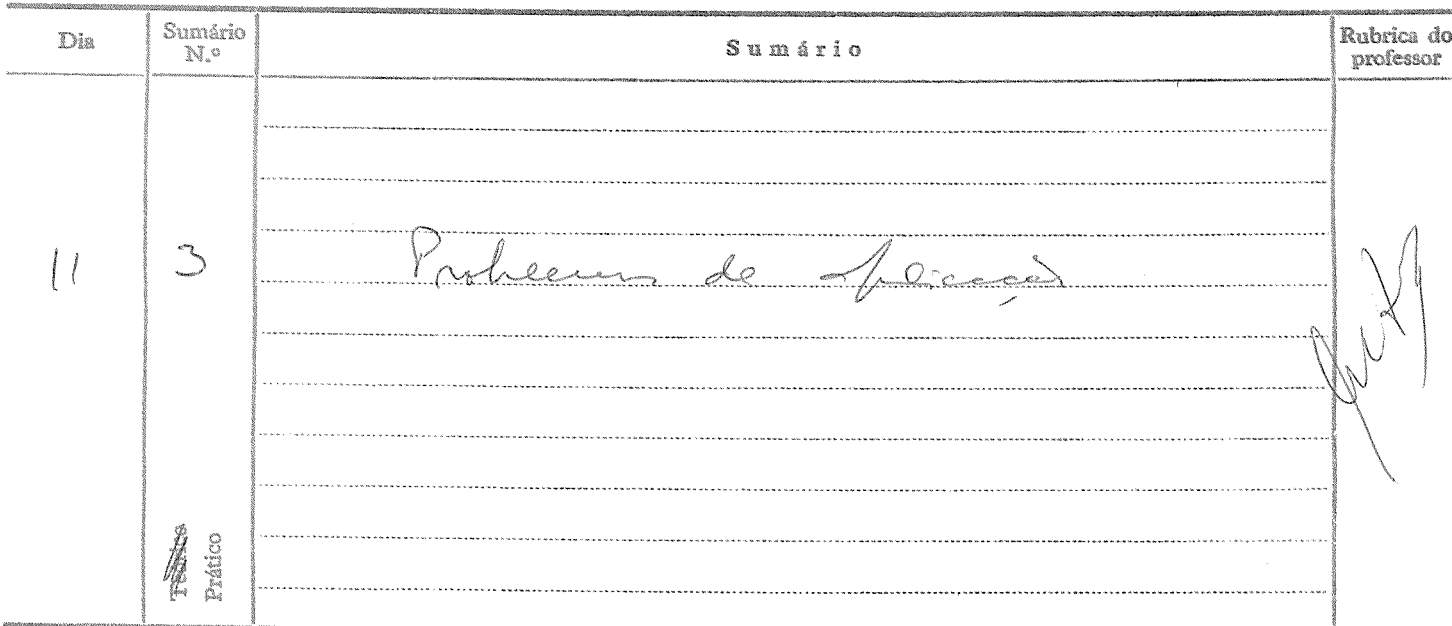 Dia
Sumário N.º
Sumário
Rubrica do professor
11
3
Problemas de aplicação
Teórico
Prático